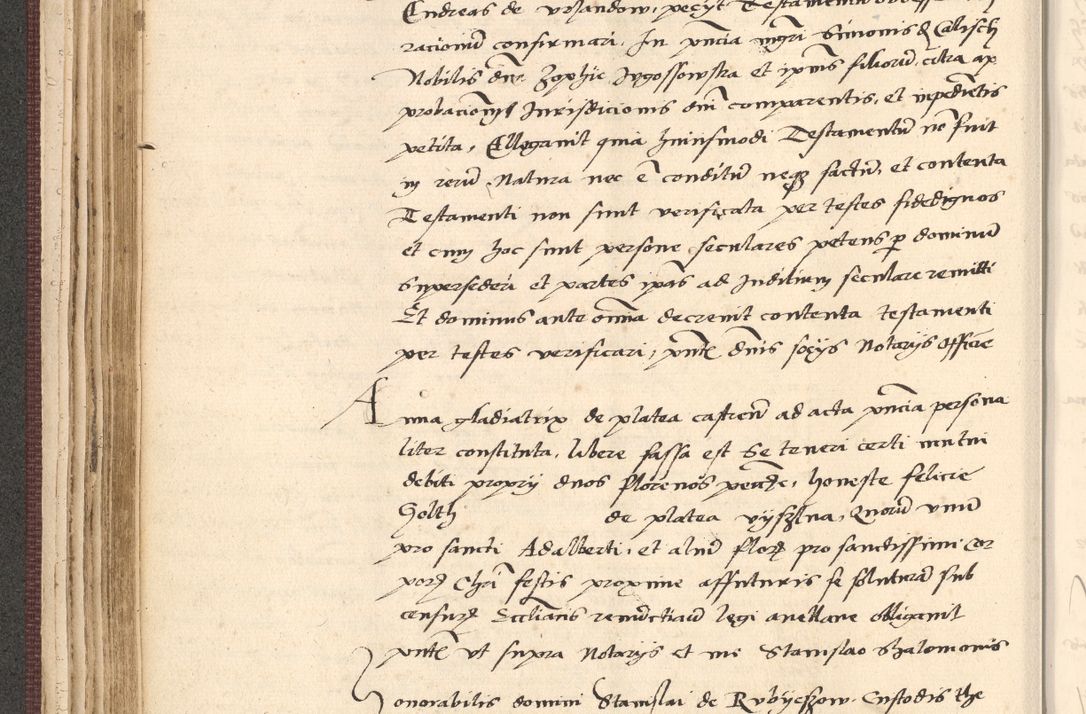 Endreas de Urzandow, pecÿt Testamentum
racionum confirmari. In pñcia mgri Simonis de Calisch
Nobilis dne Zophie Jugossowska et ipius filiorum, citra ap
probacionem Jurisdicionis dni comparentis, et inpedietis
petita, Allegavit quia huiusmodi Testamentum no fuit
in rerum Natura nec e conditum neq3 factum, et contenta
Testamenti non sunt verificata per testes fidedignos
et cum hoc sunt persone seculares petens p dominum
supersederi et partes ipas ad Juditium seculare remitti
Et dominus ante omia decrevit contenta testamenti
per testes verificari, pñte dnis socÿs Notarÿs officie
Anna gladiatrix de platea castren ad acta pñcia persona
liter constituta, libere fassa est Se teneri certi mutui
debiti proprÿ duos florenos pecuniae, honeste felicie
Solth de platea vÿslna, Quorum unum
pro sancti Adalberti, et alium flor pro sanctissimi Cor
poris Chri festis proxime affuturis se soluturam sub
censuris Ecclianis renunctiavit legi avellane obligavit
pñte ut supra Notarÿs et me Stanislao Shalomonis
Honorabilis domini Stanislai de Rubÿeszow Custodis the